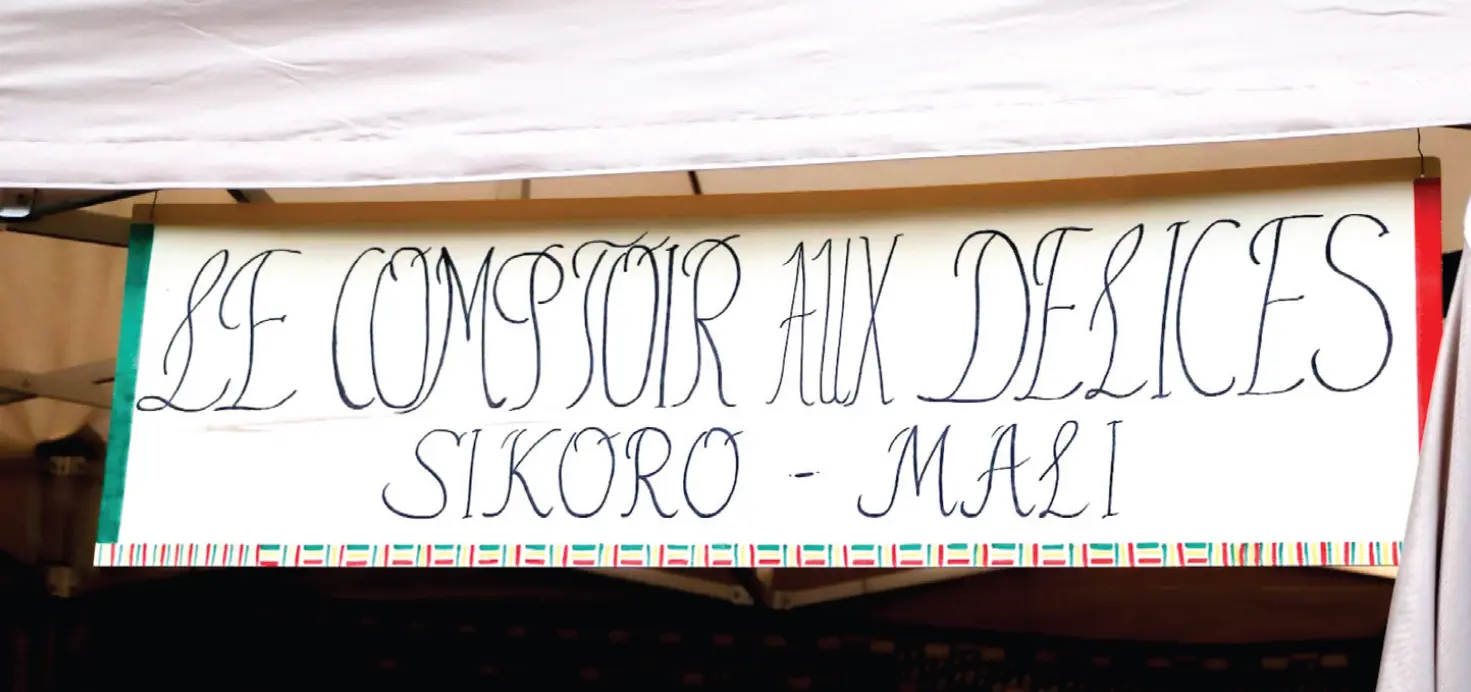 LE COMPTOIR AUX DELICES
SIKORO - MALI